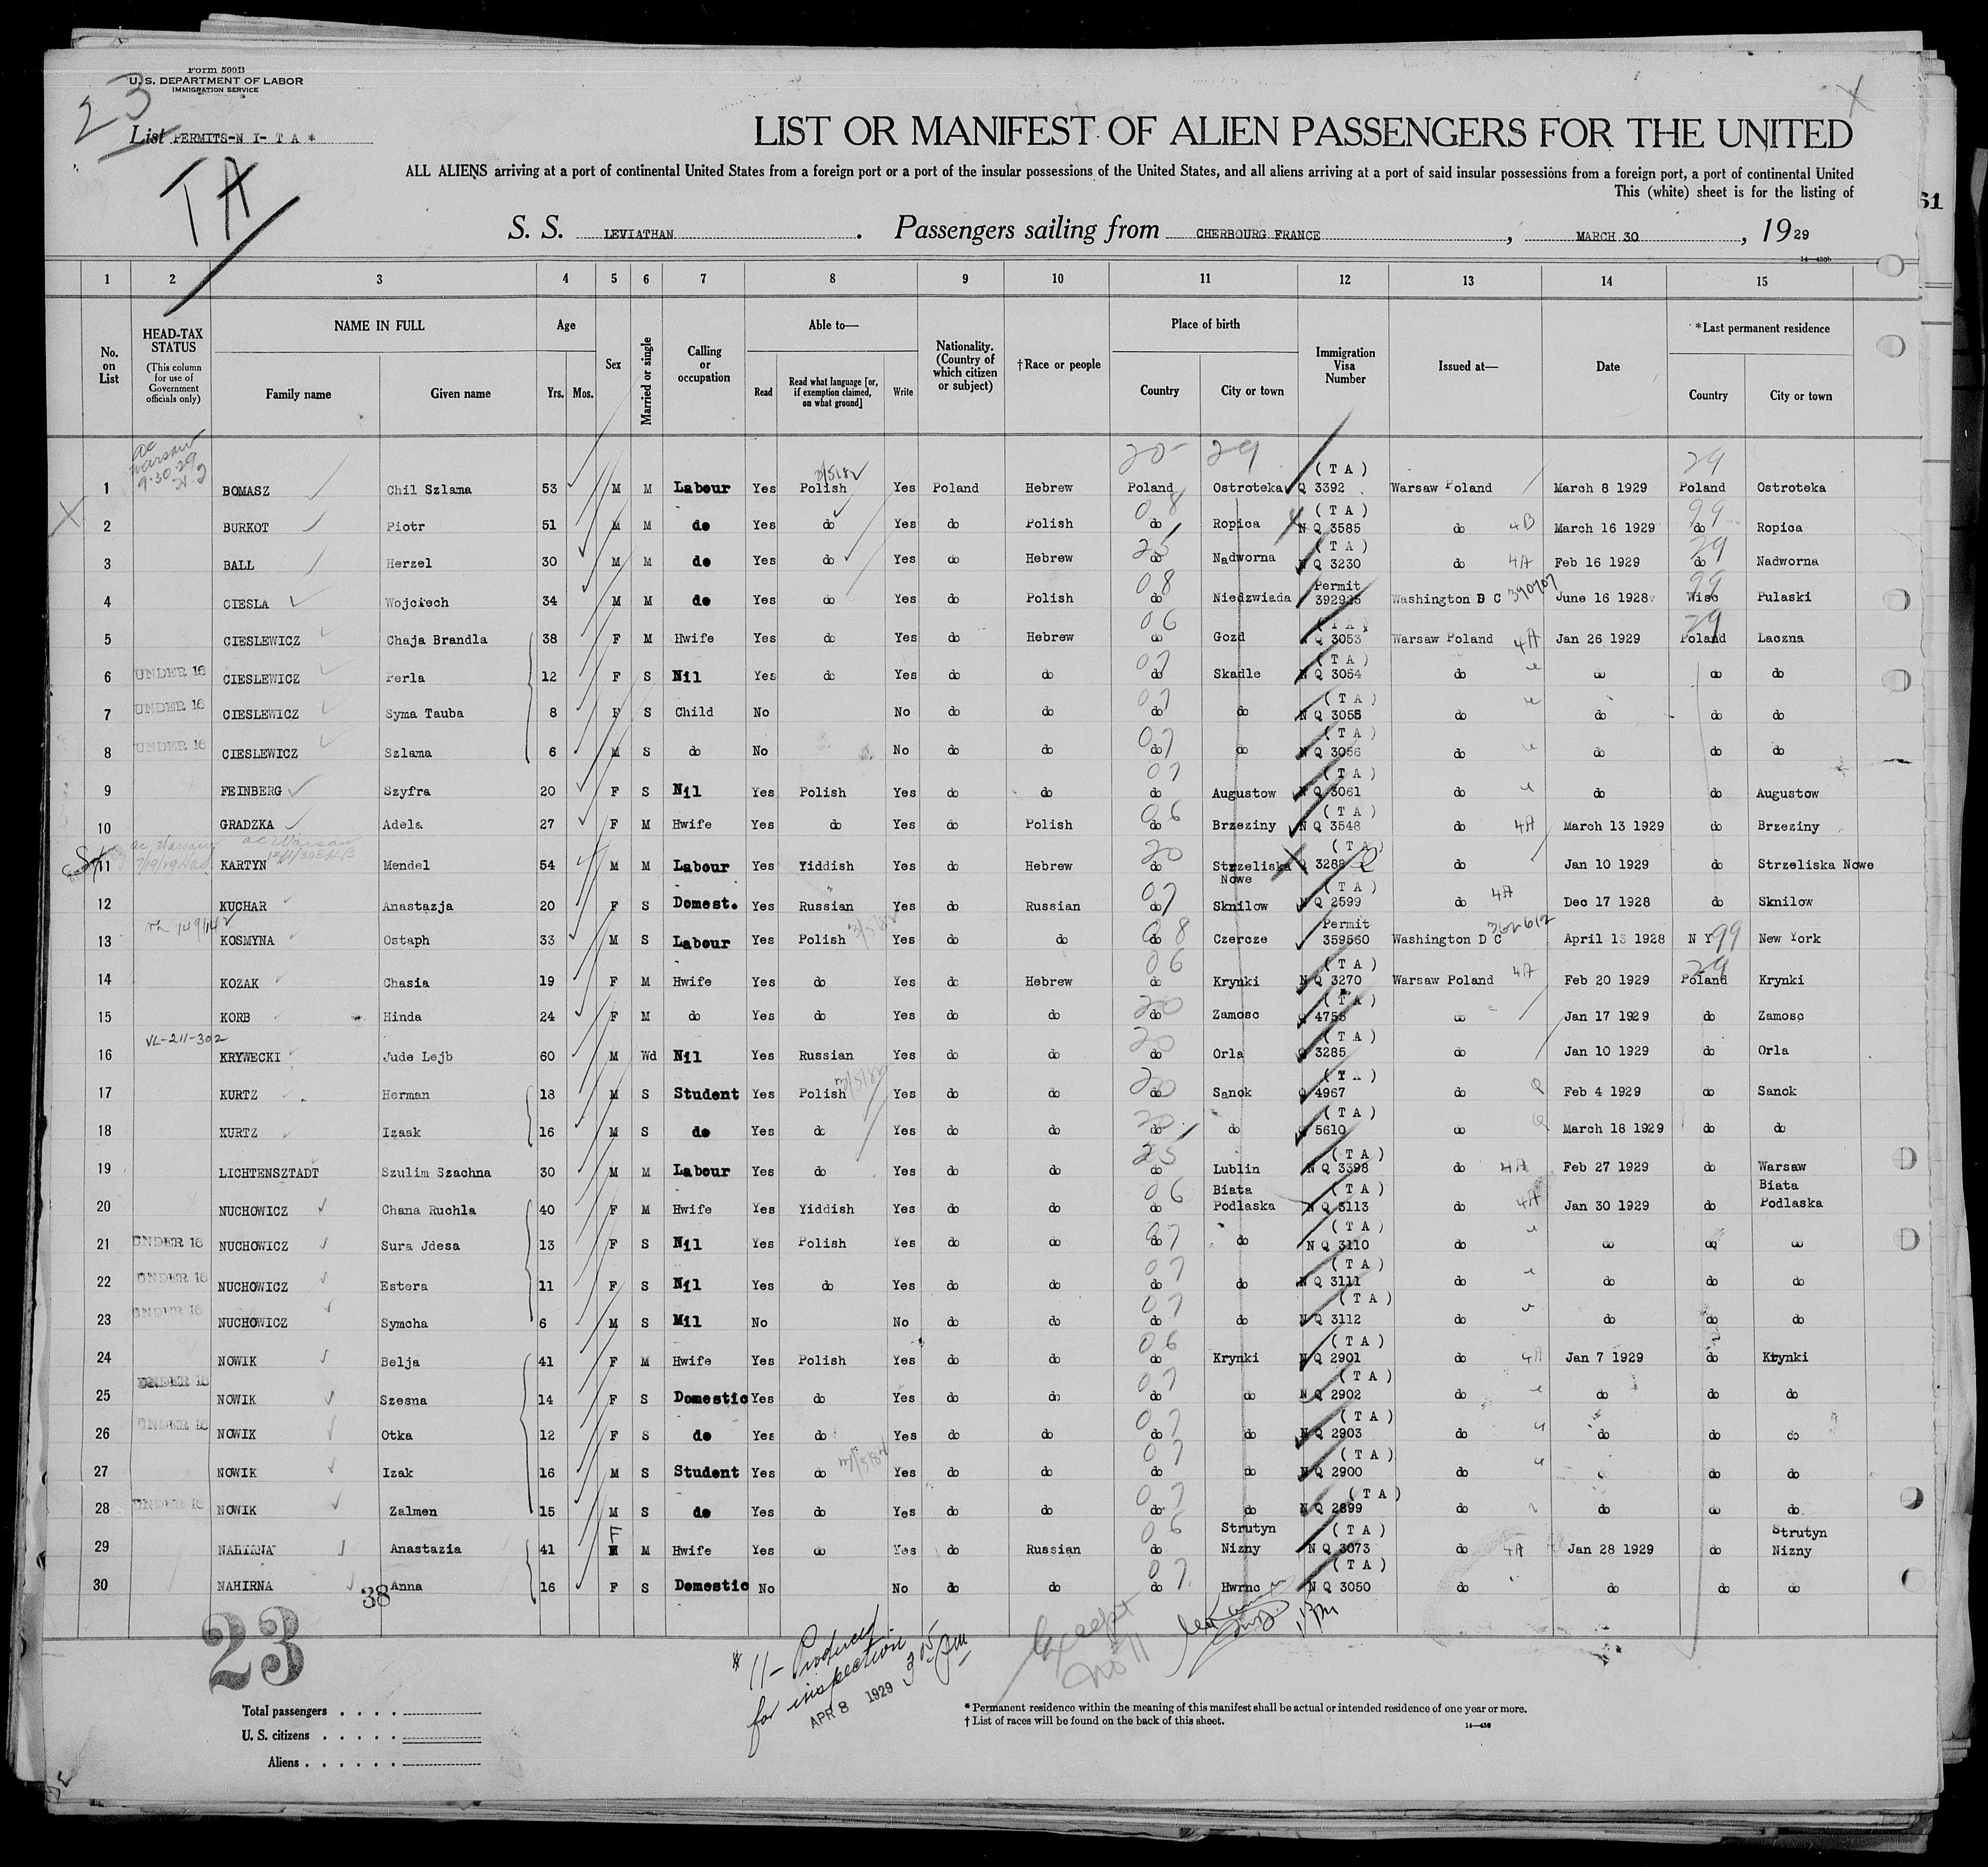 Form 500B
U. S. DEPARTMENT OF LABOR
IMMIGRATION SERVICE
23
List PERMITS-N I- T A *
TA
X
LIST OR MANIFEST OF ALIEN PASSENGERS FOR THE UNITED
ALL ALIENS arriving at a port of continental United States from a foreign port or a port of the insular possessions of the United States, and all aliens arriving at a port of said insular possessions from a foreign port, a port of continental United
This (white) sheet is for the listing of
61
S. S. LEVIATHAN . Passengers sailing from CHERBOURG FRANCE , MARCH 30 , 1929
14—430b
1 2 3 4 5 6 7 8 9 10 11 12 13 14 15
No. on List
HEAD-TAX STATUS
(This column for use of Government officials only)
NAME IN FULL
Family name Given name
Age
Yrs. Mos.
Sex
Married or single
Calling or occupation
Able to—
Read
Read what language [or, if exemption claimed, on what ground]
Write
Nationality. (Country of which citizen or subject)
†Race or people
Place of birth
Country City or town
Immigration Visa Number
Issued at—
Date
*Last permanent residence
Country City or town
20 29 (T A) 29
1 BOMASZ Chil Szlama 53 M M Labour Yes Polish Yes Poland Hebrew Poland Ostroteka Q 3392 Warsaw Poland March 8 1929 Poland Ostroteka
08 (T A) 99
2 BURKOT Piotr 51 M M do Yes do Yes do Polish do Ropica N Q 3585 do 4B March 16 1929 do Ropica
25 (T A) 29
3 BALL Herzel 30 M M do Yes do Yes do Hebrew do Nadworna N Q 3230 do 4A Feb 16 1929 do Nadworna
08 Permit 390707 99
4 CIESLA Wojciech 34 M M do Yes do Yes do Polish do Niedzwiada 392925 Washington D C June 16 1928 Wisc Pulaski
06 (T A) 29
5 CIESLEWICZ Chaja Brandla 38 F M Hwife Yes do Yes do Hebrew do Gozd N Q 3053 Warsaw Poland 4A Jan 26 1929 Poland Laczna
07 (T A)
6 UNDER 16 CIESLEWICZ Perla 12 F S Nil Yes do Yes do do do Skadle N Q 3054 do do do do
07 (T A)
7 UNDER 16 CIESLEWICZ Syma Tauba 8 F S Child No No do do do do N Q 3055 do do do do
07 (T A)
8 UNDER 16 CIESLEWICZ Szlama 6 M S do No No do do do do N Q 3056 do do do do
07 (T A)
9 FEINBERG Szyfra 20 F S Nil Yes Polish Yes do do do Augustow N Q 3061 do do do Augustow
06 (T A)
10 GRADZKA Adela 27 F M Hwife Yes do Yes do Polish do Brzeziny N Q 3548 do 4A March 13 1929 do Brzeziny
20 (T A)
11 KARTYN Mendel 54 M M Labour Yes Yiddish Yes do Hebrew do Strzeliska Nowe Q 3288 do Jan 10 1929 do Strzeliska Nowe
07 (T A)
12 KUCHAR Anastazja 20 F S Domest. Yes Russian Yes do Russian do Sknilow N Q 2599 do 4A Dec 17 1928 do Sknilow
08 Permit 362612 99
13 KOSMYNA Ostaph 33 M S Labour Yes Polish Yes do do do Czercze 359560 Washington D C April 13 1928 N Y New York
06 (T A) 29
14 KOZAK Chasia 19 F M Hwife Yes do Yes do Hebrew do Krynki N Q 3270 Warsaw Poland 4A Feb 20 1929 Poland Krynki
20 (T A)
15 KORB Hinda 24 F M do Yes do Yes do do do Zamosc Q 4755 do Jan 17 1929 do Zamosc
VL-211-302
20 (T A)
16 KRYWECKI Jude Lejb 60 M Wd Nil Yes Russian Yes do do do Orla Q 3285 do Jan 10 1929 do Orla
20 (T A)
17 KURTZ Herman 18 M S Student Yes Polish Yes do do do Sanok Q 4967 do Feb 4 1929 do Sanok
20 (T A)
18 KURTZ Izaak 16 M S do Yes do Yes do do do do 5610 do March 18 1929 do do
25 (T A)
19 LICHTENSZTADT Szulim Szachna 30 M M Labour Yes do Yes do do do Lublin N Q 3398 do 4A Feb 27 1929 do Warsaw
06 (T A)
20 NUCHOWICZ Chana Ruchla 40 F M Hwife Yes Yiddish Yes do do do Biata Podlaska N Q 3113 do 4A Jan 30 1929 do Biata Podlaska
07 (T A)
21 UNDER 16 NUCHOWICZ Sura Jdesa 13 F S Nil Yes Polish Yes do do do do N Q 3110 do do do do
07 (T A)
22 UNDER 16 NUCHOWICZ Estera 11 F S Nil Yes do Yes do do do do N Q 3111 do do do do
07 (T A)
23 UNDER 16 NUCHOWICZ Symcha 6 M S Mil No No do do do do N Q 3112 do do do do
06 (T A)
24 NOWIK Belja 41 F M Hwife Yes Polish Yes do do do Krynki N Q 2901 do 4A Jan 7 1929 do Krynki
07 (T A)
25 UNDER 16 NOWIK Szesna 14 F S Domestic Yes do Yes do do do do N Q 2902 do do do do
07 (T A)
26 UNDER 16 NOWIK Otka 12 F S do Yes do Yes do do do do N Q 2903 do do do do
07 (T A)
27 NOWIK Izak 16 M S Student Yes do Yes do do do do N Q 2900 do do do
07 (T A)
28 UNDER 16 NOWIK Zalmen 15 M S do Yes do Yes do do do do N Q 2899 do do do do
06 (T A)
29 NAHIRNA Anastazia 41 F M Hwife Yes do Yes do Russian do Strutyn Nizny N Q 3073 do 4A Jan 28 1929 do Strutyn Nizny
07 (T A)
30 NAHIRNA Anna 16 F S Domestic No No do do do Hwrnc N Q 3050 do do do do
38
23
# 11 - Produced
for inspection
APR 8 1929
Except
No 11
Total passengers . . . .
U. S. citizens . . . . .
Aliens . . . . . .
* Permanent residence within the meaning of this manifest shall be actual or intended residence of one year or more.
† List of races will be found on the back of this sheet.
14—430